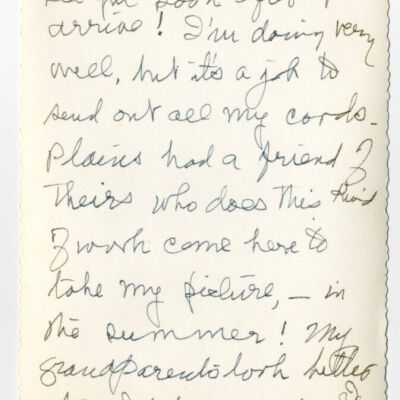 see you soon after I
arrive! I'm doing very
well, but it's a job to
send out all my cards.
Plains had a friend of
Theirs who does this kind
of work come here to
take my picture, — in
the summer! My
grandparents look better